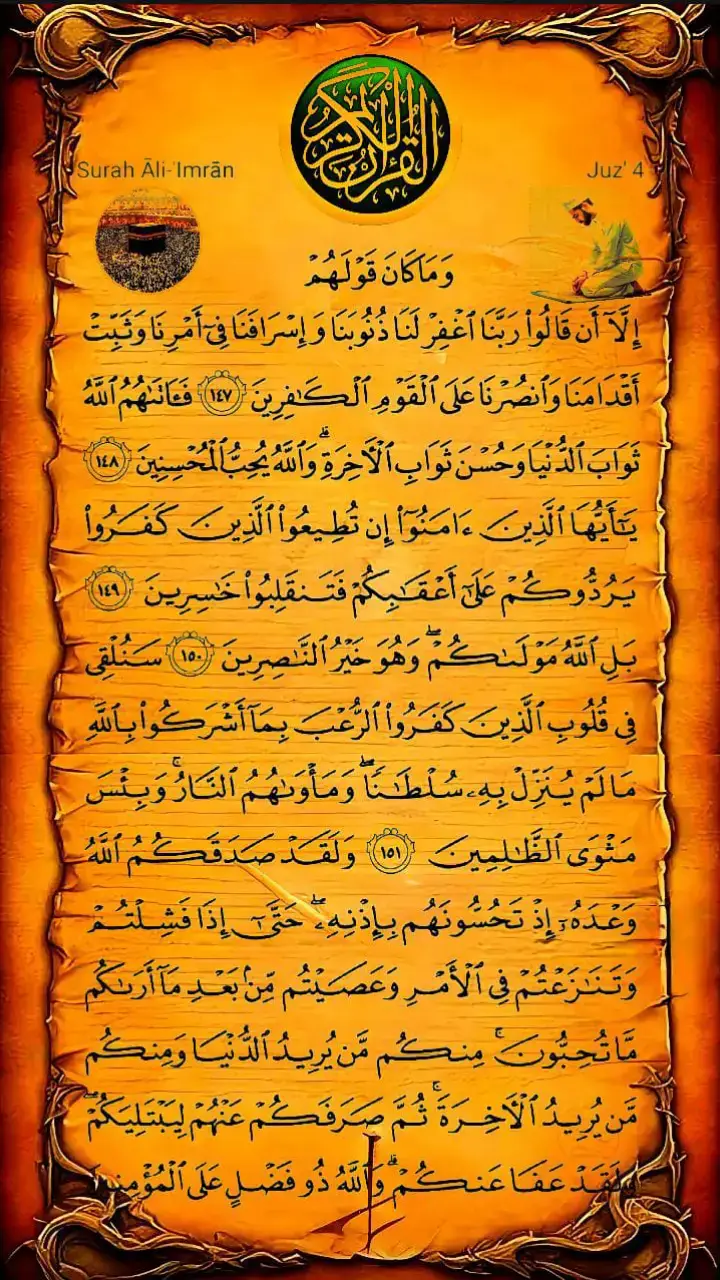 القرآن الكريم
Surah Āli-ʿImrān
Juz' 4
وَمَا كَانَ قَوْلَهُمْ
إِلَّآ أَن قَالُوا۟ رَبَّنَا ٱغْفِرْ لَنَا ذُنُوبَنَا وَإِسْرَافَنَا فِىٓ أَمْرِنَا وَثَبِّتْ
أَقْدَامَنَا وَٱنصُرْنَا عَلَى ٱلْقَوْمِ ٱلْكَـٰفِرِينَ ١٤٧ فَـَٔاتَىٰهُمُ ٱللَّهُ
ثَوَابَ ٱلدُّنْيَا وَحُسْنَ ثَوَابِ ٱلْـَٔاخِرَةِ ۗ وَٱللَّهُ يُحِبُّ ٱلْمُحْسِنِينَ ١٤٨
يَـٰٓأَيُّهَا ٱلَّذِينَ ءَامَنُوٓا۟ إِن تُطِيعُوا۟ ٱلَّذِينَ كَفَرُوا۟
يَرُدُّوكُمْ عَلَىٰٓ أَعْقَـٰبِكُمْ فَتَنقَلِبُوا۟ خَـٰسِرِينَ ١٤٩
بَلِ ٱللَّهُ مَوْلَىٰكُمْ ۖ وَهُوَ خَيْرُ ٱلنَّـٰصِرِينَ ١٥٠ سَنُلْقِى
فِى قُلُوبِ ٱلَّذِينَ كَفَرُوا۟ ٱلرُّعْبَ بِمَآ أَشْرَكُوا۟ بِٱللَّهِ
مَا لَمْ يُنَزِّلْ بِهِۦ سُلْطَـٰنًا ۖ وَمَأْوَىٰهُمُ ٱلنَّارُ ۚ وَبِئْسَ
مَثْوَى ٱلظَّـٰلِمِينَ ١٥١ وَلَقَدْ صَدَقَكُمُ ٱللَّهُ
وَعْدَهُۥٓ إِذْ تَحُسُّونَهُم بِإِذْنِهِۦ ۖ حَتَّىٰٓ إِذَا فَشِلْتُمْ
وَتَنَـٰزَعْتُمْ فِى ٱلْأَمْرِ وَعَصَيْتُم مِّنۢ بَعْدِ مَآ أَرَىٰكُم
مَّا تُحِبُّونَ ۚ مِنكُم مَّن يُرِيدُ ٱلدُّنْيَا وَمِنكُم
مَّن يُرِيدُ ٱلْـَٔاخِرَةَ ۚ ثُمَّ صَرَفَكُمْ عَنْهُمْ لِيَبْتَلِيَكُمْ ۖ
وَلَقَدْ عَفَا عَنكُمْ ۗ وَٱللَّهُ ذُو فَضْلٍ عَلَى ٱلْمُؤْمِنِينَ